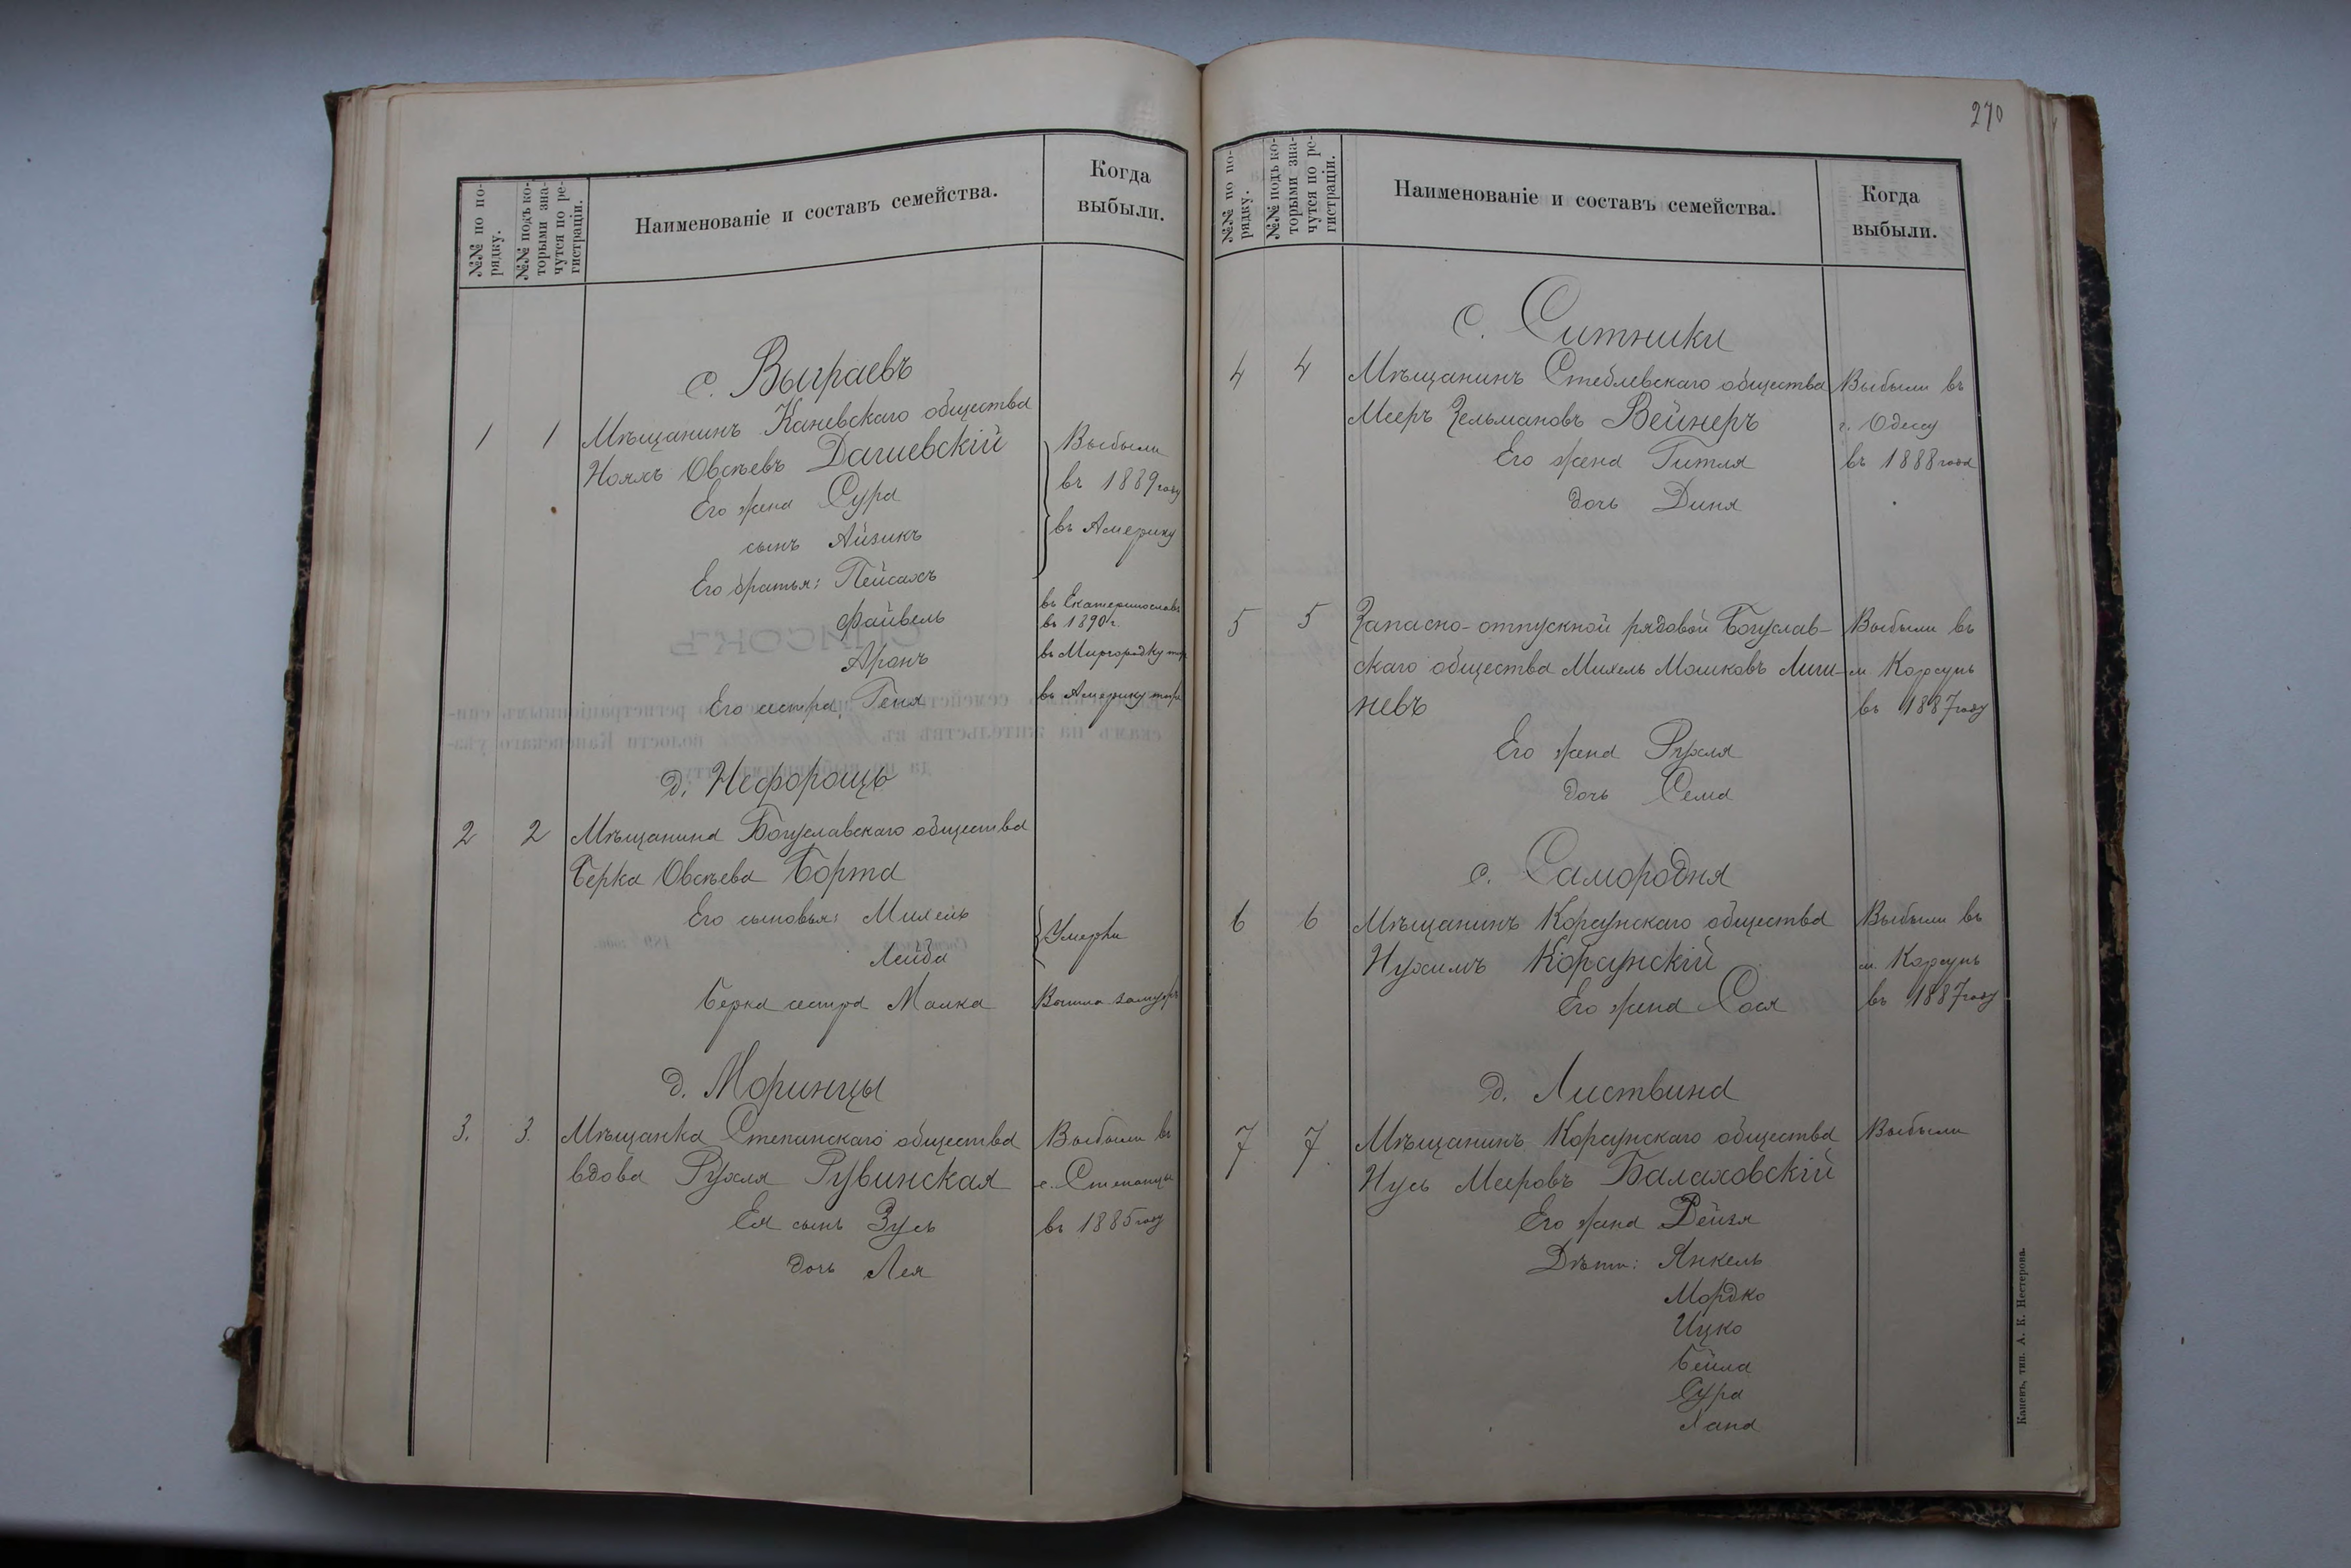 №№ по по-
рядку.
№№ подъ ко-
торыми зна-
чутся по ре-
гистраціи.
Наименованіе и составъ семейства.
Когда
выбыли.
с. Выграевъ
1 1 Мѣщанинъ Каневскаго общества
Нояхъ Овсѣевъ Дашевскій
Его жена Сура
сынъ Айзикъ
Его братья: Пейсахъ
Файвель
Аронъ
Его сестра, Геня
Выбыли
въ 1889 году
въ Америку
въ Екатеринославъ
въ 1890 г.
въ Миргородку
въ Америку
д. Нефорощь
2 2 Мѣщанина Богуславскаго общества
Берка Овсѣева Борта
Его сыновья: Михель
Лейба
Умерли
Берка сестра Малка
Вышла замужъ
д. Моринцы
3. 3. Мѣщанка Степанскаго общества
вдова Рухля Рувинская
Ея сынъ Зусь
дочь Лея
Выбыли въ
с. Степанцы
въ 1885 году
270
№№ по по-
рядку.
№№ подъ ко-
торыми зна-
чутся по ре-
гистраціи.
Наименованіе и составъ семейства.
Когда
выбыли.
с. Ситники
4 4 Мѣщанинъ Стеблевскаго общества
Мееръ Зельмановъ Вейнеръ
Его жена Гитля
дочь Диня
Выбыли въ
г. Одессу
въ 1888 года
5 5 Запасно-отпускной рядовой Богуслав-
скаго общества Михель Мошковъ Лиш-
невъ
Его жена Рухля
дочь Сема
Выбыли въ
м. Корсунь
въ 1887 году
с. Самородня
6 6 Мѣщанинъ Корсунскаго общества
Нухимъ Корсунскій
Его жена Сося
Выбыли въ
м. Корсунь
въ 1887 году
д. Листвина
7 7. Мѣщанинъ Корсунскаго общества
Нусь Мееровъ Балаховскій
Его жена Рейзя
Дѣти: Янкель
Мордко
Ицко
Бейла
Сура
Хана
Выбыли
Каневъ, тип. А. К. Нестерова.